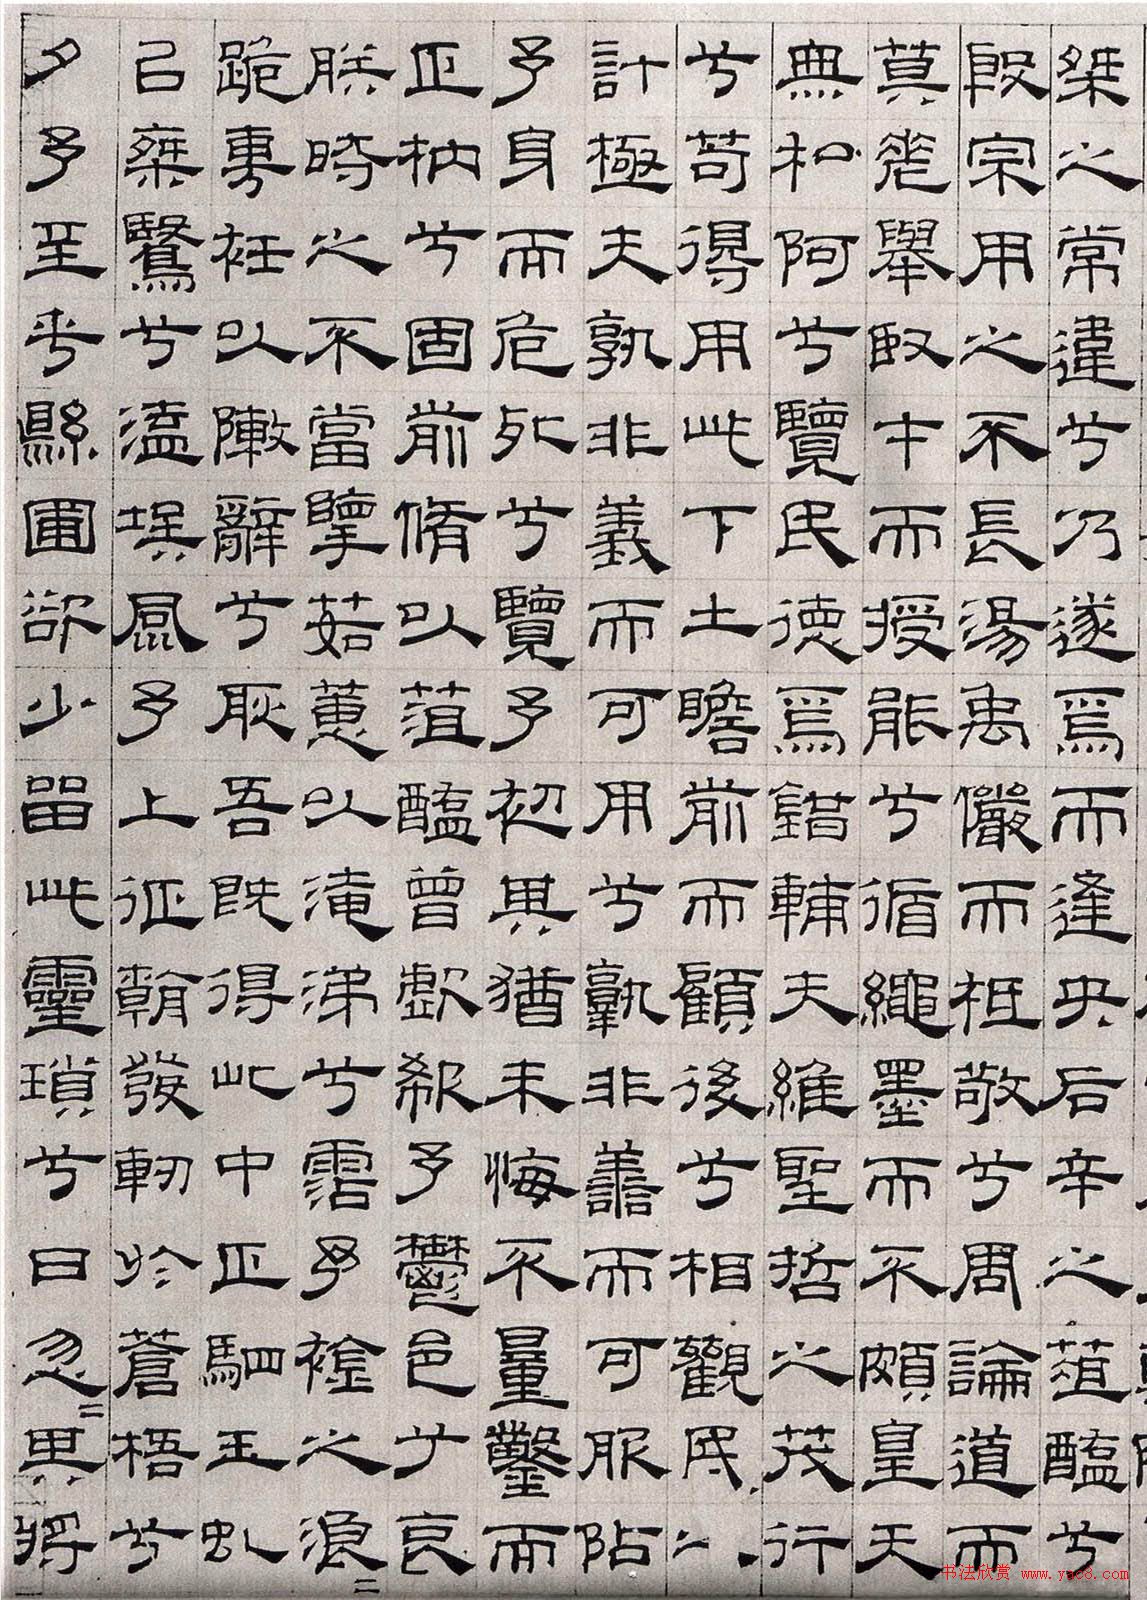 桀之常違兮乃遂焉而逢央后辛之葅醢兮
殷宗用之不長湯禹儼而祗敬兮周論道而
莫差舉臤才而授能兮循繩墨而不頗皇天
無私阿兮覽民德焉錯輔夫維聖哲之茂行
兮苟得用此下土瞻前而顧後兮相觀民之
計極夫孰非義而可用兮孰非善而可服阽
予身而危死兮覽予初其猶未悔不量鑿而
正枘兮固前脩以葅醢曾歔欷予鬱邑兮哀
朕時之不當擥茹蕙以淹涕兮霑予襟之浪=
跪尃衽以陳辭兮耿吾既得此中正駟玉虬
以椉鷖兮溘埃風予上征朝發軔於蒼梧兮
夕予至乎縣圃欲少留此靈瑣兮日忽=其將
书法欣赏 www.yac8.com